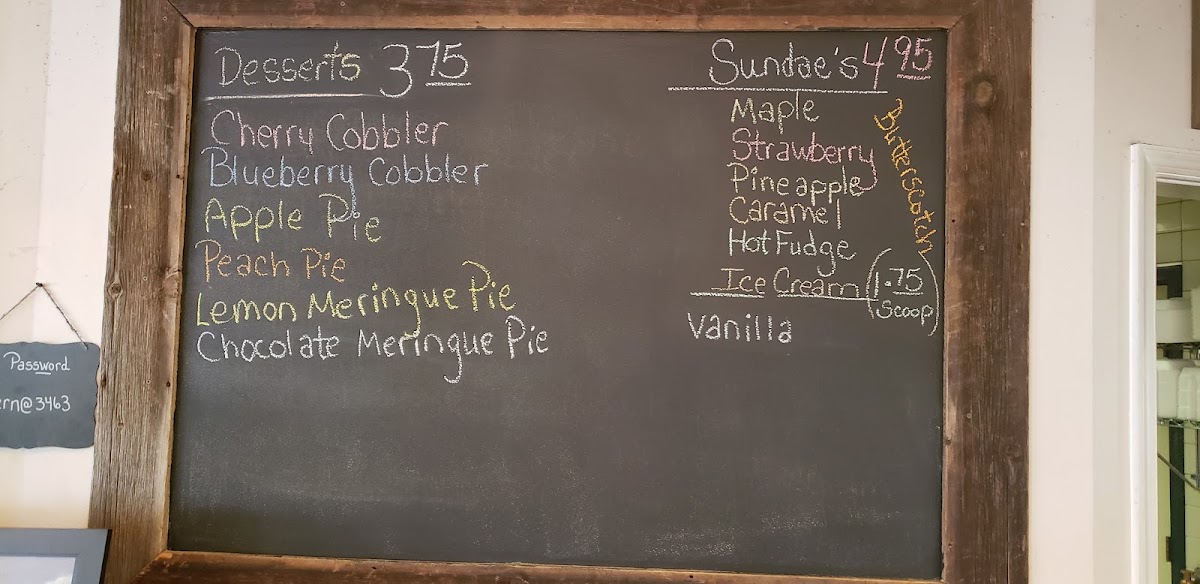 Desserts 3 75
Cherry Cobbler
Blueberry Cobbler
Apple Pie
Peach Pie
Lemon Meringue Pie
Chocolate Meringue Pie
Sundae's 4 95
Maple
Strawberry
Pineapple
Caramel
Hot Fudge
Butterscotch
Ice Cream (1.75 Scoop)
Vanilla
Password
ern@3463